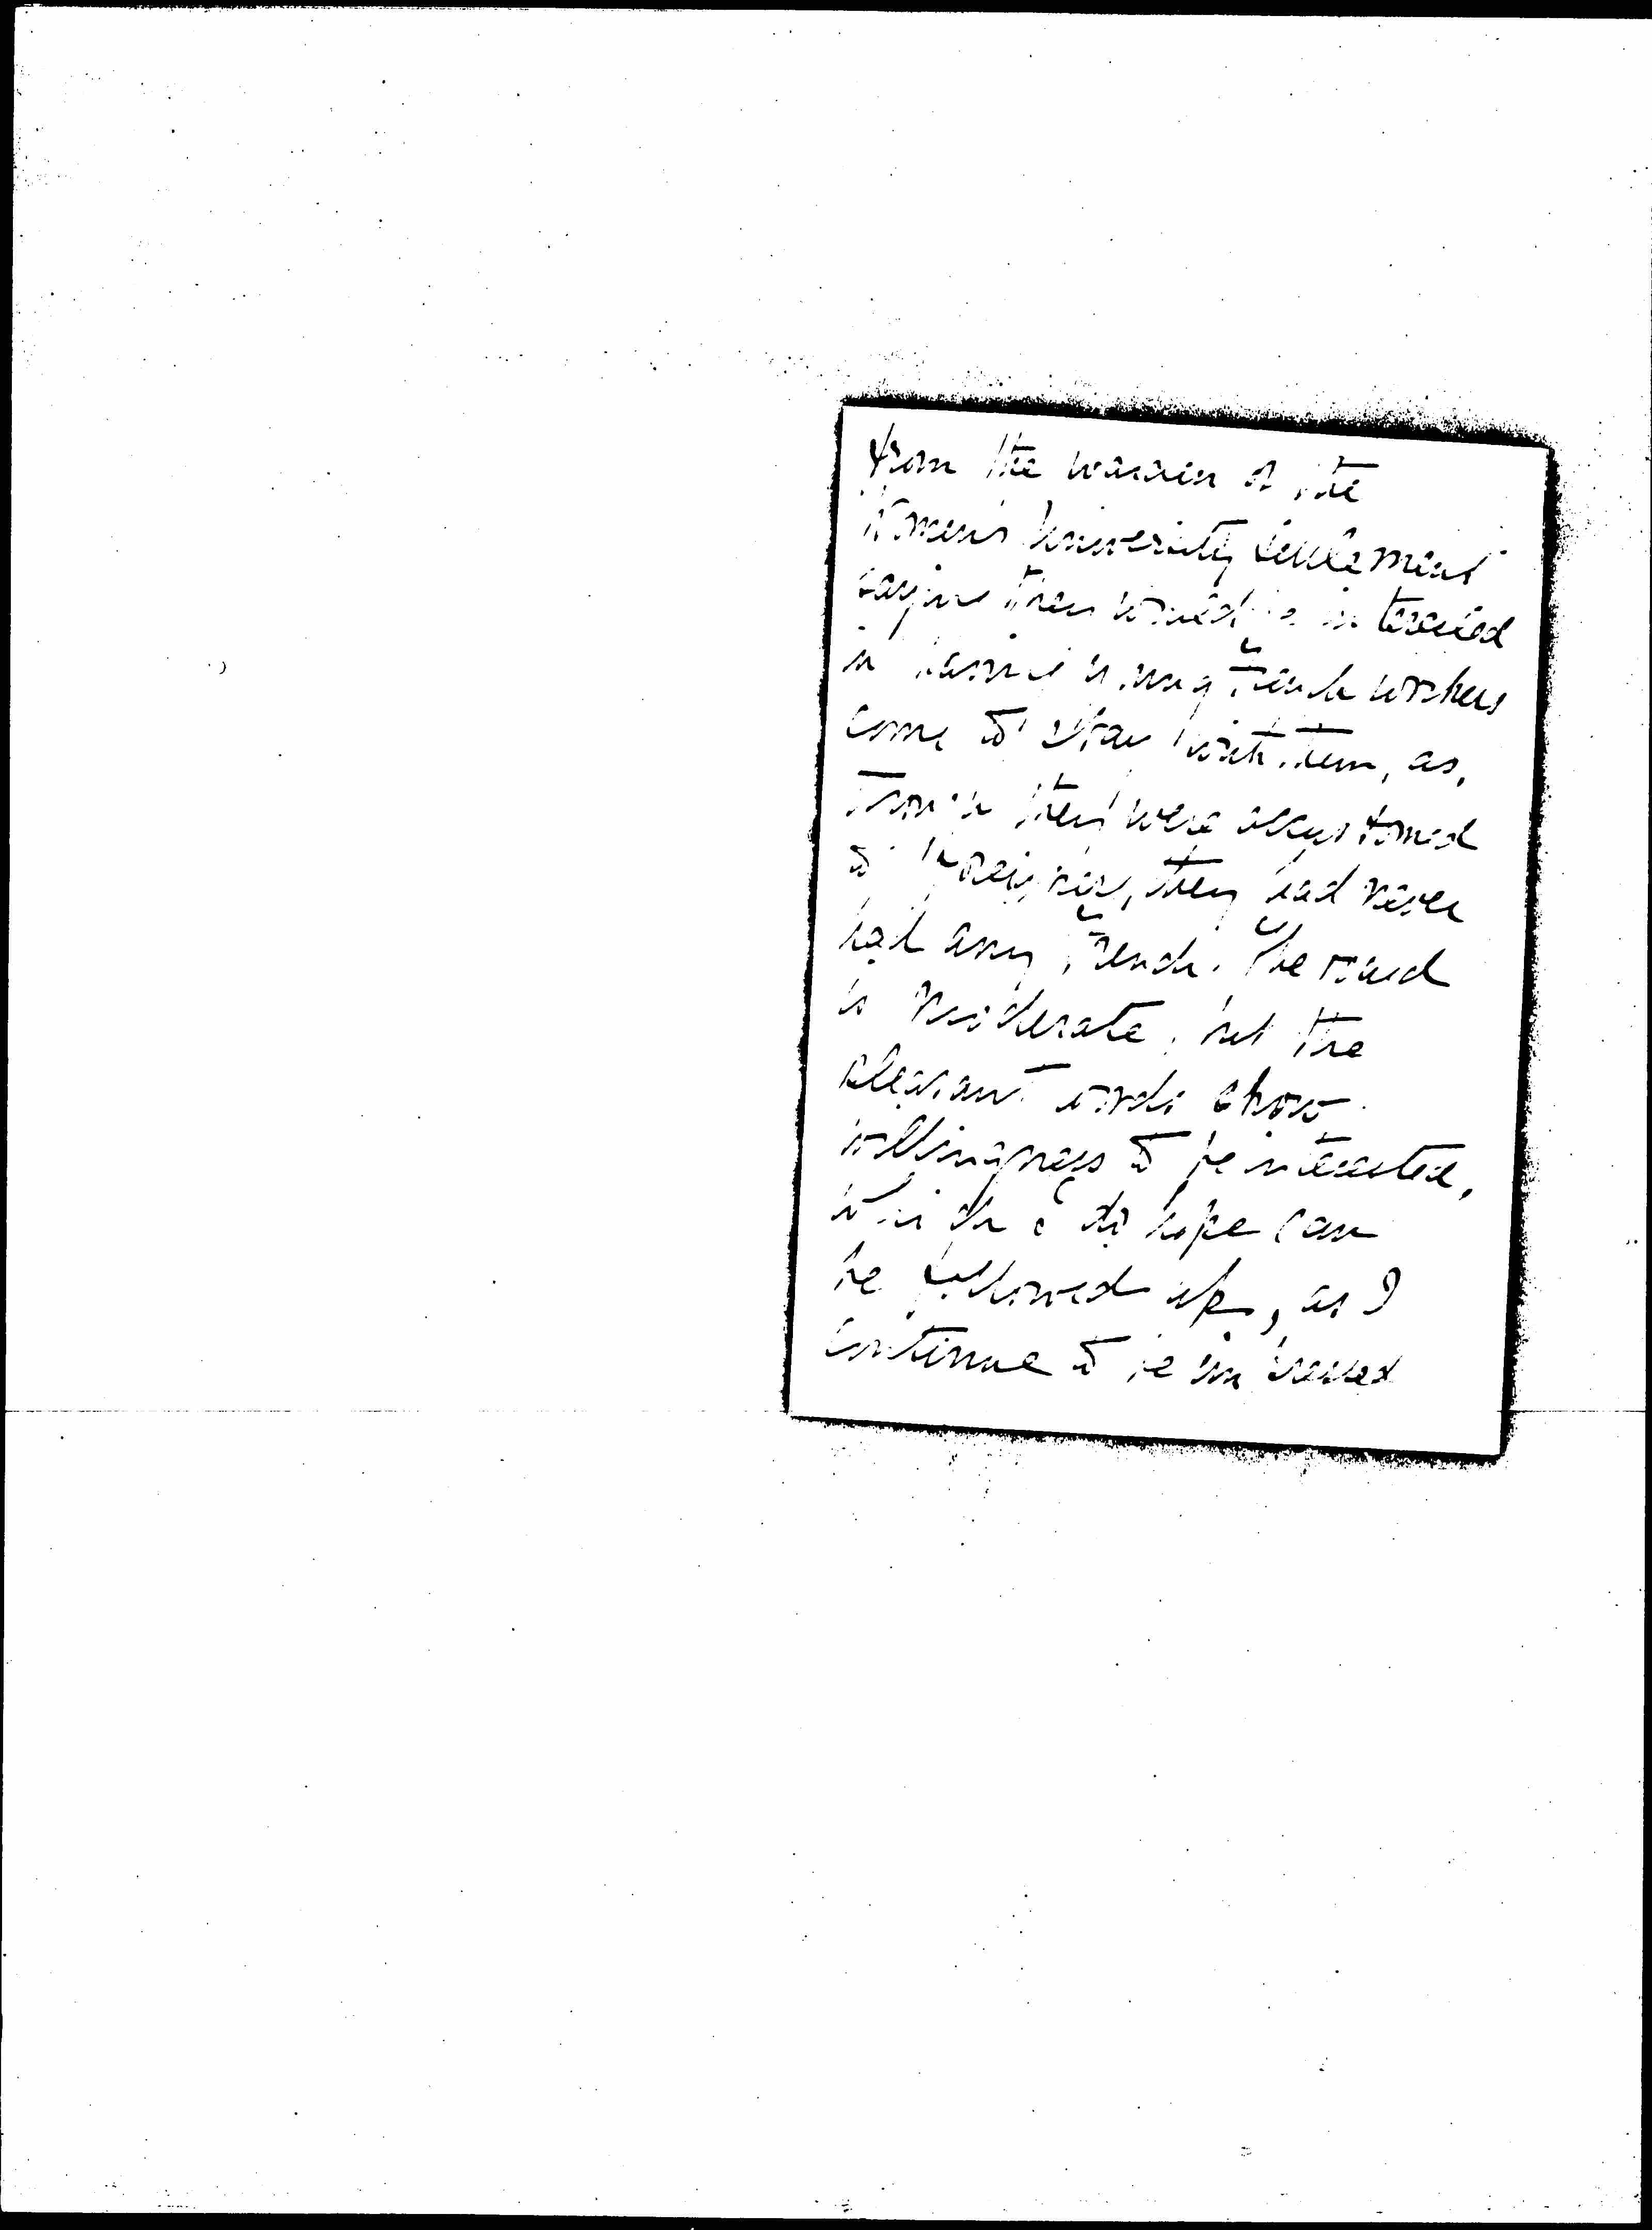 from the warden of the
Women's University Settlement
saying they would be interested
in having young French workers
come to stay with them, as,
though they were accustomed
to foreigners, they had never
had any French. The
is moderate, but the
pleasant words show
willingness to be interested,
which I do hope can
be followed up, as I
continue to be impressed